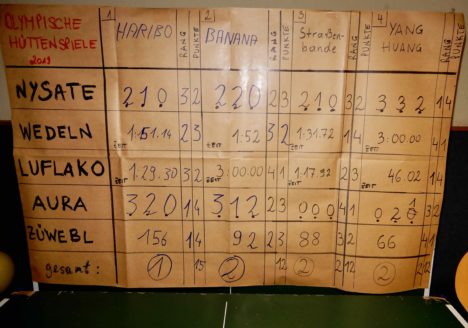 OLYMPISCHE
HÜTTENSPIELE
2019
1 HARIBO RANG PUNKTE
2 BANANA RANG PUNKTE
3 Straßen-
bande RANG PUNKTE
4 YANG
HUANG RANG PUNKTE
NYSATE 210 3 2 220 2 3 210 3 2 332 1 4
WEDELN ZEIT 1:51.14 2 3 1:52 3 2 ZEIT 1:31.72 1 4 ZEIT 3:00.00 4 1
LUFLAKO ZEIT 1:29.30 3 2 ZEIT 3:00.00 4 1 ZEIT 1:17.92 2 3 ZEIT 46.02 1 4
AURA 320 1 4 312 2 3 000 4 1 3 2
ZÜWEBL 156 1 4 92 2 3 88 3 2 66 4 1
gesamt: 1 15 2 12 2 12 2 12